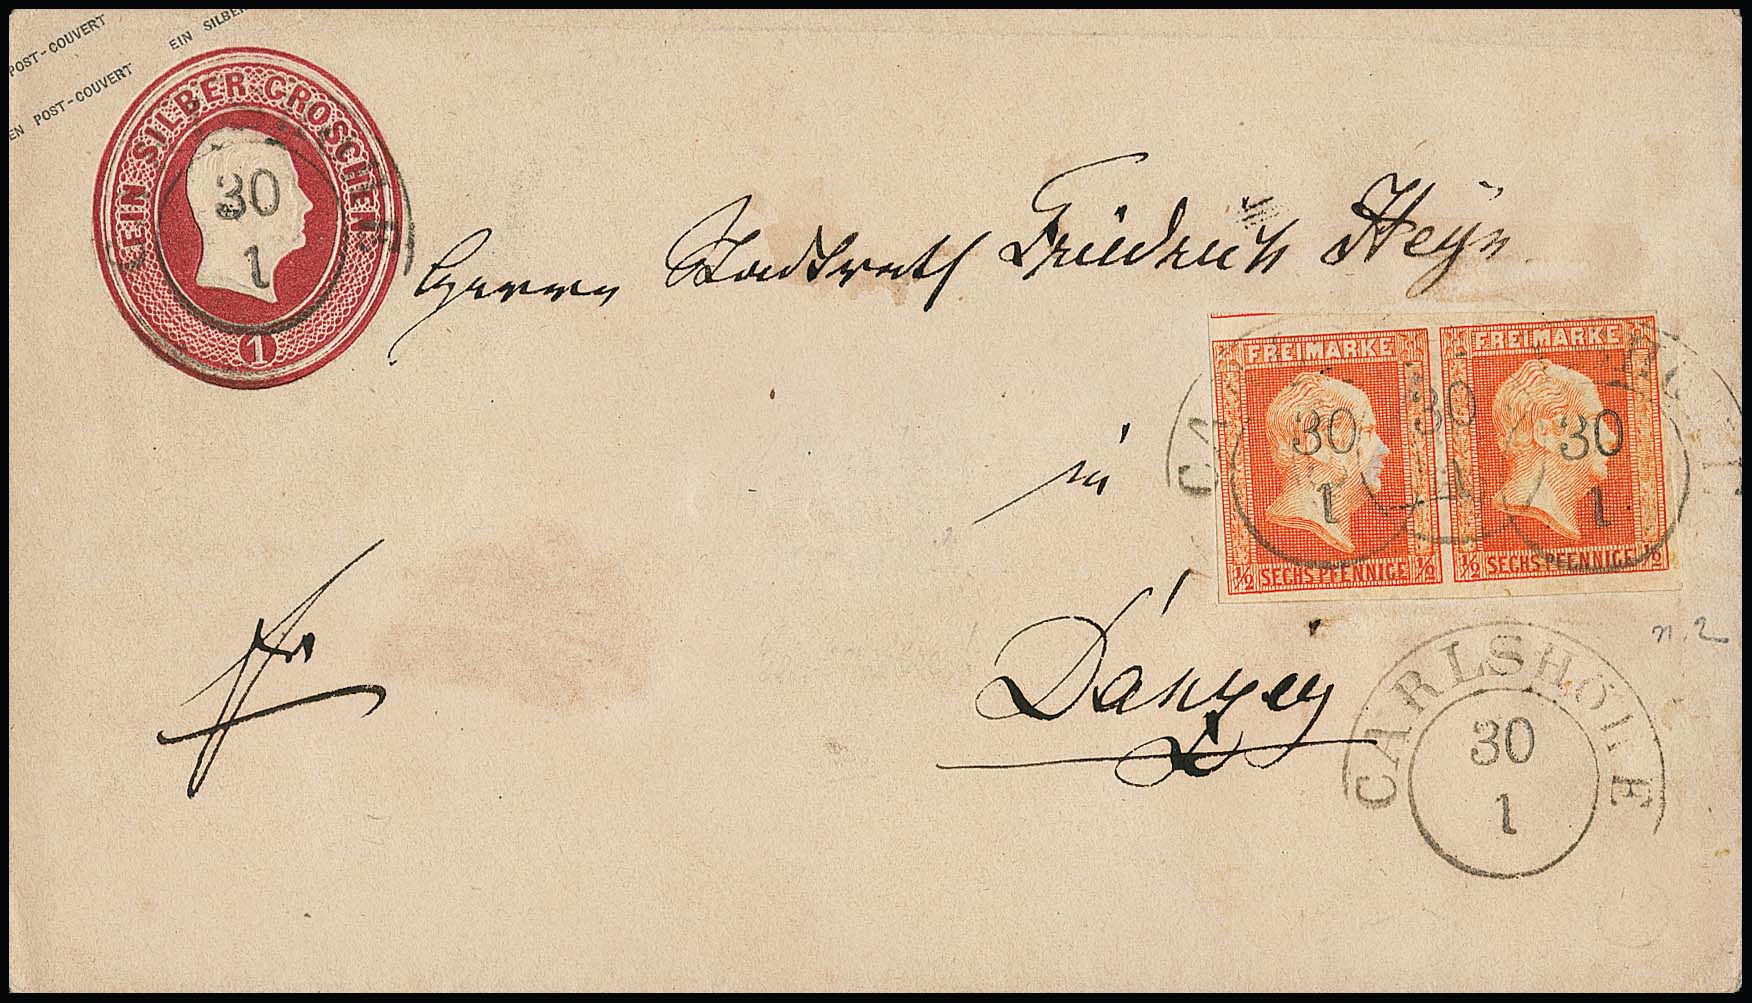 POST-COUVERT EIN SILBER
EN POST-COUVERT
EIN SILBER GROSCHEN
30
1
1
Herrn Stadtrath Friedrich Heyn
FREIMARKE FREIMARKE
30 30 30
1 1 1
½ SECHS PFENNIGE ½ ½ SECHS PFENNIGE ½
in
Danzig
fr
n. 2
CARLSHÖHE
30
1